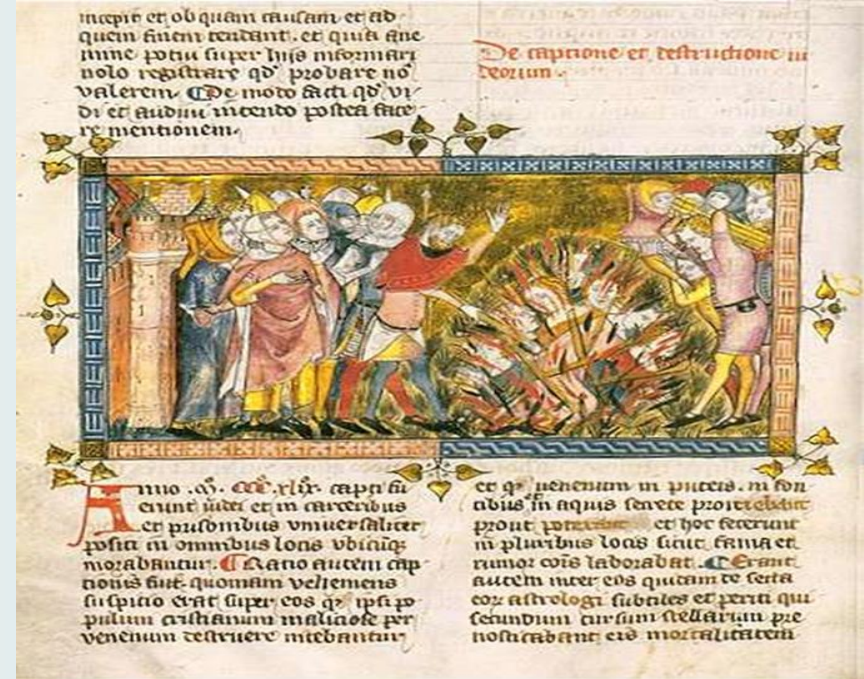 incepit et ob quam causam et ad
quem finem tendant. et quia ane
mine potui super hijs informari
nolo registrare qd' probare no
valerem. De modo facti qd' vi
di et audivi intendo postea face
re mentionem.
De captione et destructione iu
deorum.
Anno .m. ccc. xlix. capti fu
erunt iudei et in carceribus
et prisonibus universaliter
positi in omnibus locis ubicūq
morabantur. Ratio autem cap
tionis fuit. quoniam vehemens
suspitio erat super eos qz ipsi po
pulum cristianum maliciose per
venenum destruere nitebantur
et qz venenum in puteis. in fon
tibus et in aquis secrete
prout et hoc fecerunt
in pluribus locis sicut fama et
rumor cōis laborabat. Erant
autem inter eos quidam de secta
eorz astrologi subtiles et periti qui
secundum cursum stellarum pre
nosticabant eis mortalitatem